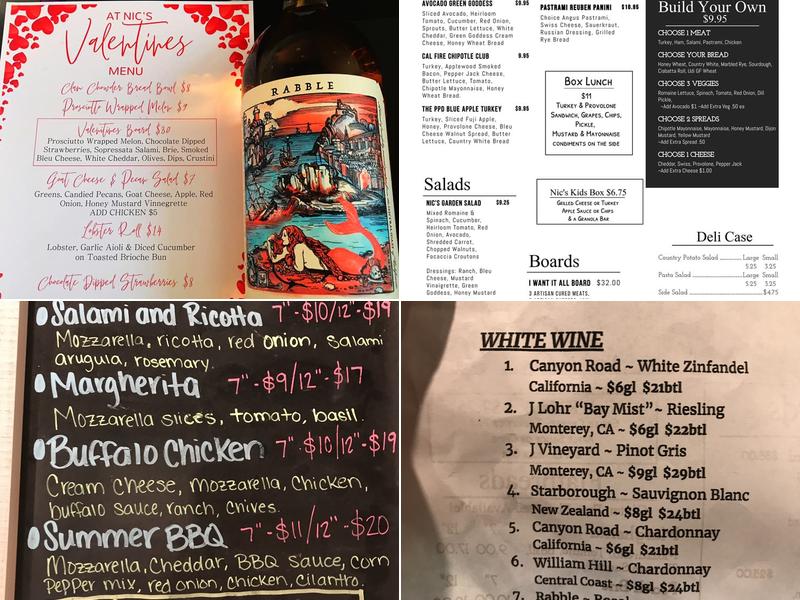 AT NIC'S
Valentines
MENU
Clam Chowder Bread Bowl $8
Prosciutto Wrapped Melon $9
Valentines Board $30
Prosciutto Wrapped Melon, Chocolate Dipped
Strawberries, Sopressata Salami, Brie, Smoked
Bleu Cheese, White Cheddar, Olives, Dips, Crustini
Goat Cheese & Pecan Salad $7
Greens, Candied Pecans, Goat Cheese, Apple, Red
Onion, Honey Mustard Vinnegrette
ADD CHICKEN $5
Lobster Roll $14
Lobster, Garlic Aioli & Diced Cucumber
on Toasted Brioche Bun
Chocolate Dipped Strawberries $8
RABBLE
AVOCADO GREEN GODDESS $9.95
Sliced Avocado, Heirloom
Tomato, Cucumber, Red Onion,
Sprouts, Butter Lettuce, White
Cheddar, Green Goddess Cream
Cheese, Honey Wheat Bread
CAL FIRE CHIPOTLE CLUB 9.95
Turkey, Applewood Smoked
Bacon, Pepper Jack Cheese,
Butter Lettuce, Tomato,
Chipotle Mayonnaise, Honey
Wheat Bread.
THE PPD BLUE APPLE TURKEY $9.95
Turkey, Sliced Fuji Apple,
Honey, Provolone Cheese, Bleu
Cheese Walnut Spread, Butter
Lettuce, Country White Bread
Salads
NIC'S GARDEN SALAD $9.25
Mixed Romaine &
Spinach, Cucumber,
Heirloom Tomato, Red
Onion, Avocado,
Shredded Carrot,
Chopped Walnuts,
Focaccia Croutons
Dressings: Ranch, Bleu
Cheese, Mustard
Vinaigrette, Green
Goddess, Honey Mustard
PASTRAMI REUBEN PANINI $10.95
Choice Angus Pastrami,
Swiss Cheese, Sauerkraut,
Russian Dressing, Grilled
Rye Bread
Box Lunch
$11
Turkey & Provolone
Sandwich, Grapes, Chips,
Pickle,
Mustard & Mayonnaise
condiments on the side
Nic's Kids Box $6.75
Grilled Cheese or Turkey
Apple Sauce or Chips
& a Granola Bar
Boards
I WANT IT ALL BOARD $32.00
3 ARTISAN CURED MEATS,
Build Your Own
$9.95
CHOOSE 1 MEAT
Turkey, Ham, Salami, Pastrami, Chicken
CHOOSE YOUR BREAD
Honey Wheat, Country White, Marbled Rye, Sourdough,
Ciabatta Roll, Udi GF Wheat
CHOOSE 3 VEGGIES
Romaine Lettuce, Spinach, Tomato, Red Onion, Dill
Pickle,
~Add Avocado $1 ~Add Extra Veg .50 ea
CHOOSE 2 SPREADS
Chipotle Mayonnaise, Mayonnaise, Honey Mustard, Dijon
Mustard, Yellow Mustard
~Add Extra Spread .50
CHOOSE 1 CHEESE
Cheddar, Swiss, Provolone, Pepper Jack
~Add Extra Cheese $1.00
Deli Case
Country Potato Salad Large Small
5.25 3.25
Pasta Salad Large Small
5.25 3.25
Side Salad $4.75
Salami and Ricotta 7"-$10/12"-$19
Mozzarella, ricotta, red onion, salami
arugula, rosemary.
Margherita 7"-$9/12"-$17
Mozzarella slices, tomato, basil.
Buffalo Chicken 7"-$10/12"-$19
Cream Cheese, mozzarella, chicken,
buffalo sauce, ranch, chives.
Summer BBQ 7"-$11/12"-$20
Mozzarella, Cheddar, BBQ sauce, corn
Pepper mix, red onion, chicken, cilantro.
WHITE WINE
1. Canyon Road ~ White Zinfandel
California ~ $6gl $21btl
2. J Lohr "Bay Mist" ~ Riesling
Monterey, CA ~ $6gl $22btl
3. J Vineyard ~ Pinot Gris
Monterey, CA ~ $9gl $29btl
4. Starborough ~ Sauvignon Blanc
New Zealand ~ $8gl $24btl
5. Canyon Road ~ Chardonnay
California ~ $6gl $21btl
6. William Hill ~ Chardonnay
Central Coast ~ $8gl $24btl
7. Rabble ~